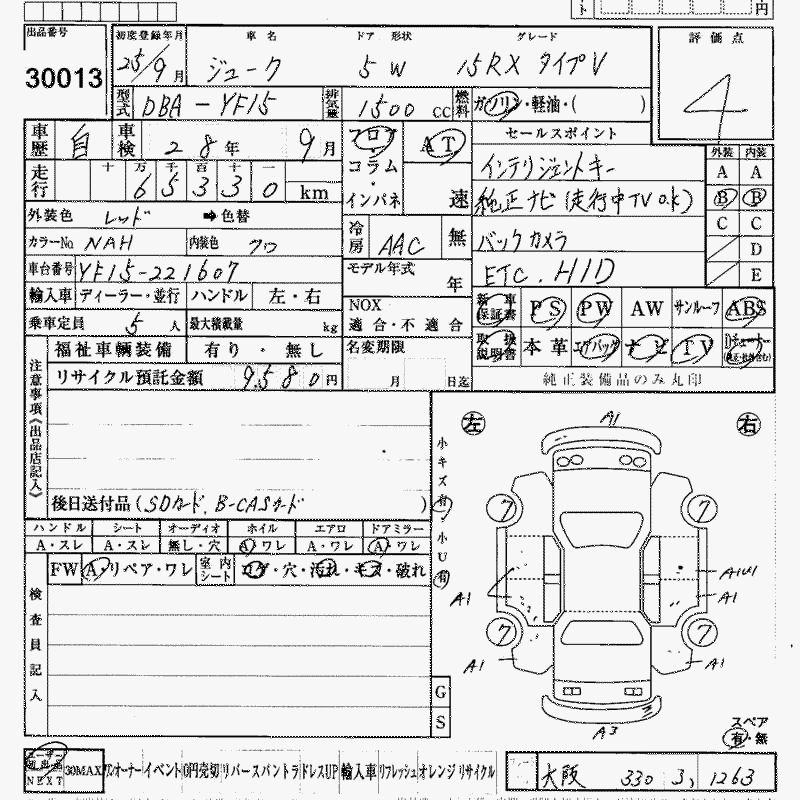 円
出品番号 初度登録年月 車名 ドア 形状 グレード 評価点
30013 25/9月 ジューク 5 W 15RX タイプV 4
型式 DBA-YF15 排気量 1500 CC 燃料 ガソリン・軽油・( )
車歴 自 車検 28年 9月 フロア・コラム・インパネ AT 速 セールスポイント 外装 内装
走行 十 万 千 百 十 一
65330 km
インテリジェントキー A A
純正ナビ(走行中TV o.k) B B
外装色 レッド ➡色替 冷房 AAC 無 バックカメラ C C
カラーNo. NAH 内装色 クロ ETC. HID D
車台番号 YF15-221607 モデル年式 年 E
輸入車 ディーラー・並行 ハンドル 左・右 NOX 適合・不適合 新車保証書 PS PW AW サンルーフ ABS
乗車定員 5人 最大積載量 kg 取扱説明書 本革 エアバッグ ナビ TV
福祉車輌装備 有り・無し 名変期限 月 日迄 純正装備品のみ丸印
リサイクル預託金額 9,580円
注意事項《出品店記入》
後日送付品(SDカード、B-CASカード)
小キズ 有・小U 有
左 右
A1
ハンドル シート オーディオ ホイル エアロ ドアミラー
A・スレ A・スレ 無し・穴 A・ワレ A・ワレ A・ワレ
FW A・リペア・ワレ 室内シート コゲ・穴・汚れ・キズ・破れ
検査員記入
ワ ワ
A1 A1
ワ ワ
A1 A1
A3
G
S
スペア
有・無
ユーザー NEXT 30MAX ワンオーナー イベント 0円売切 リバース バントラ ドレスUP 輸入車 リフレッシュ オレンジ リサイクル
大阪 330 す 1263